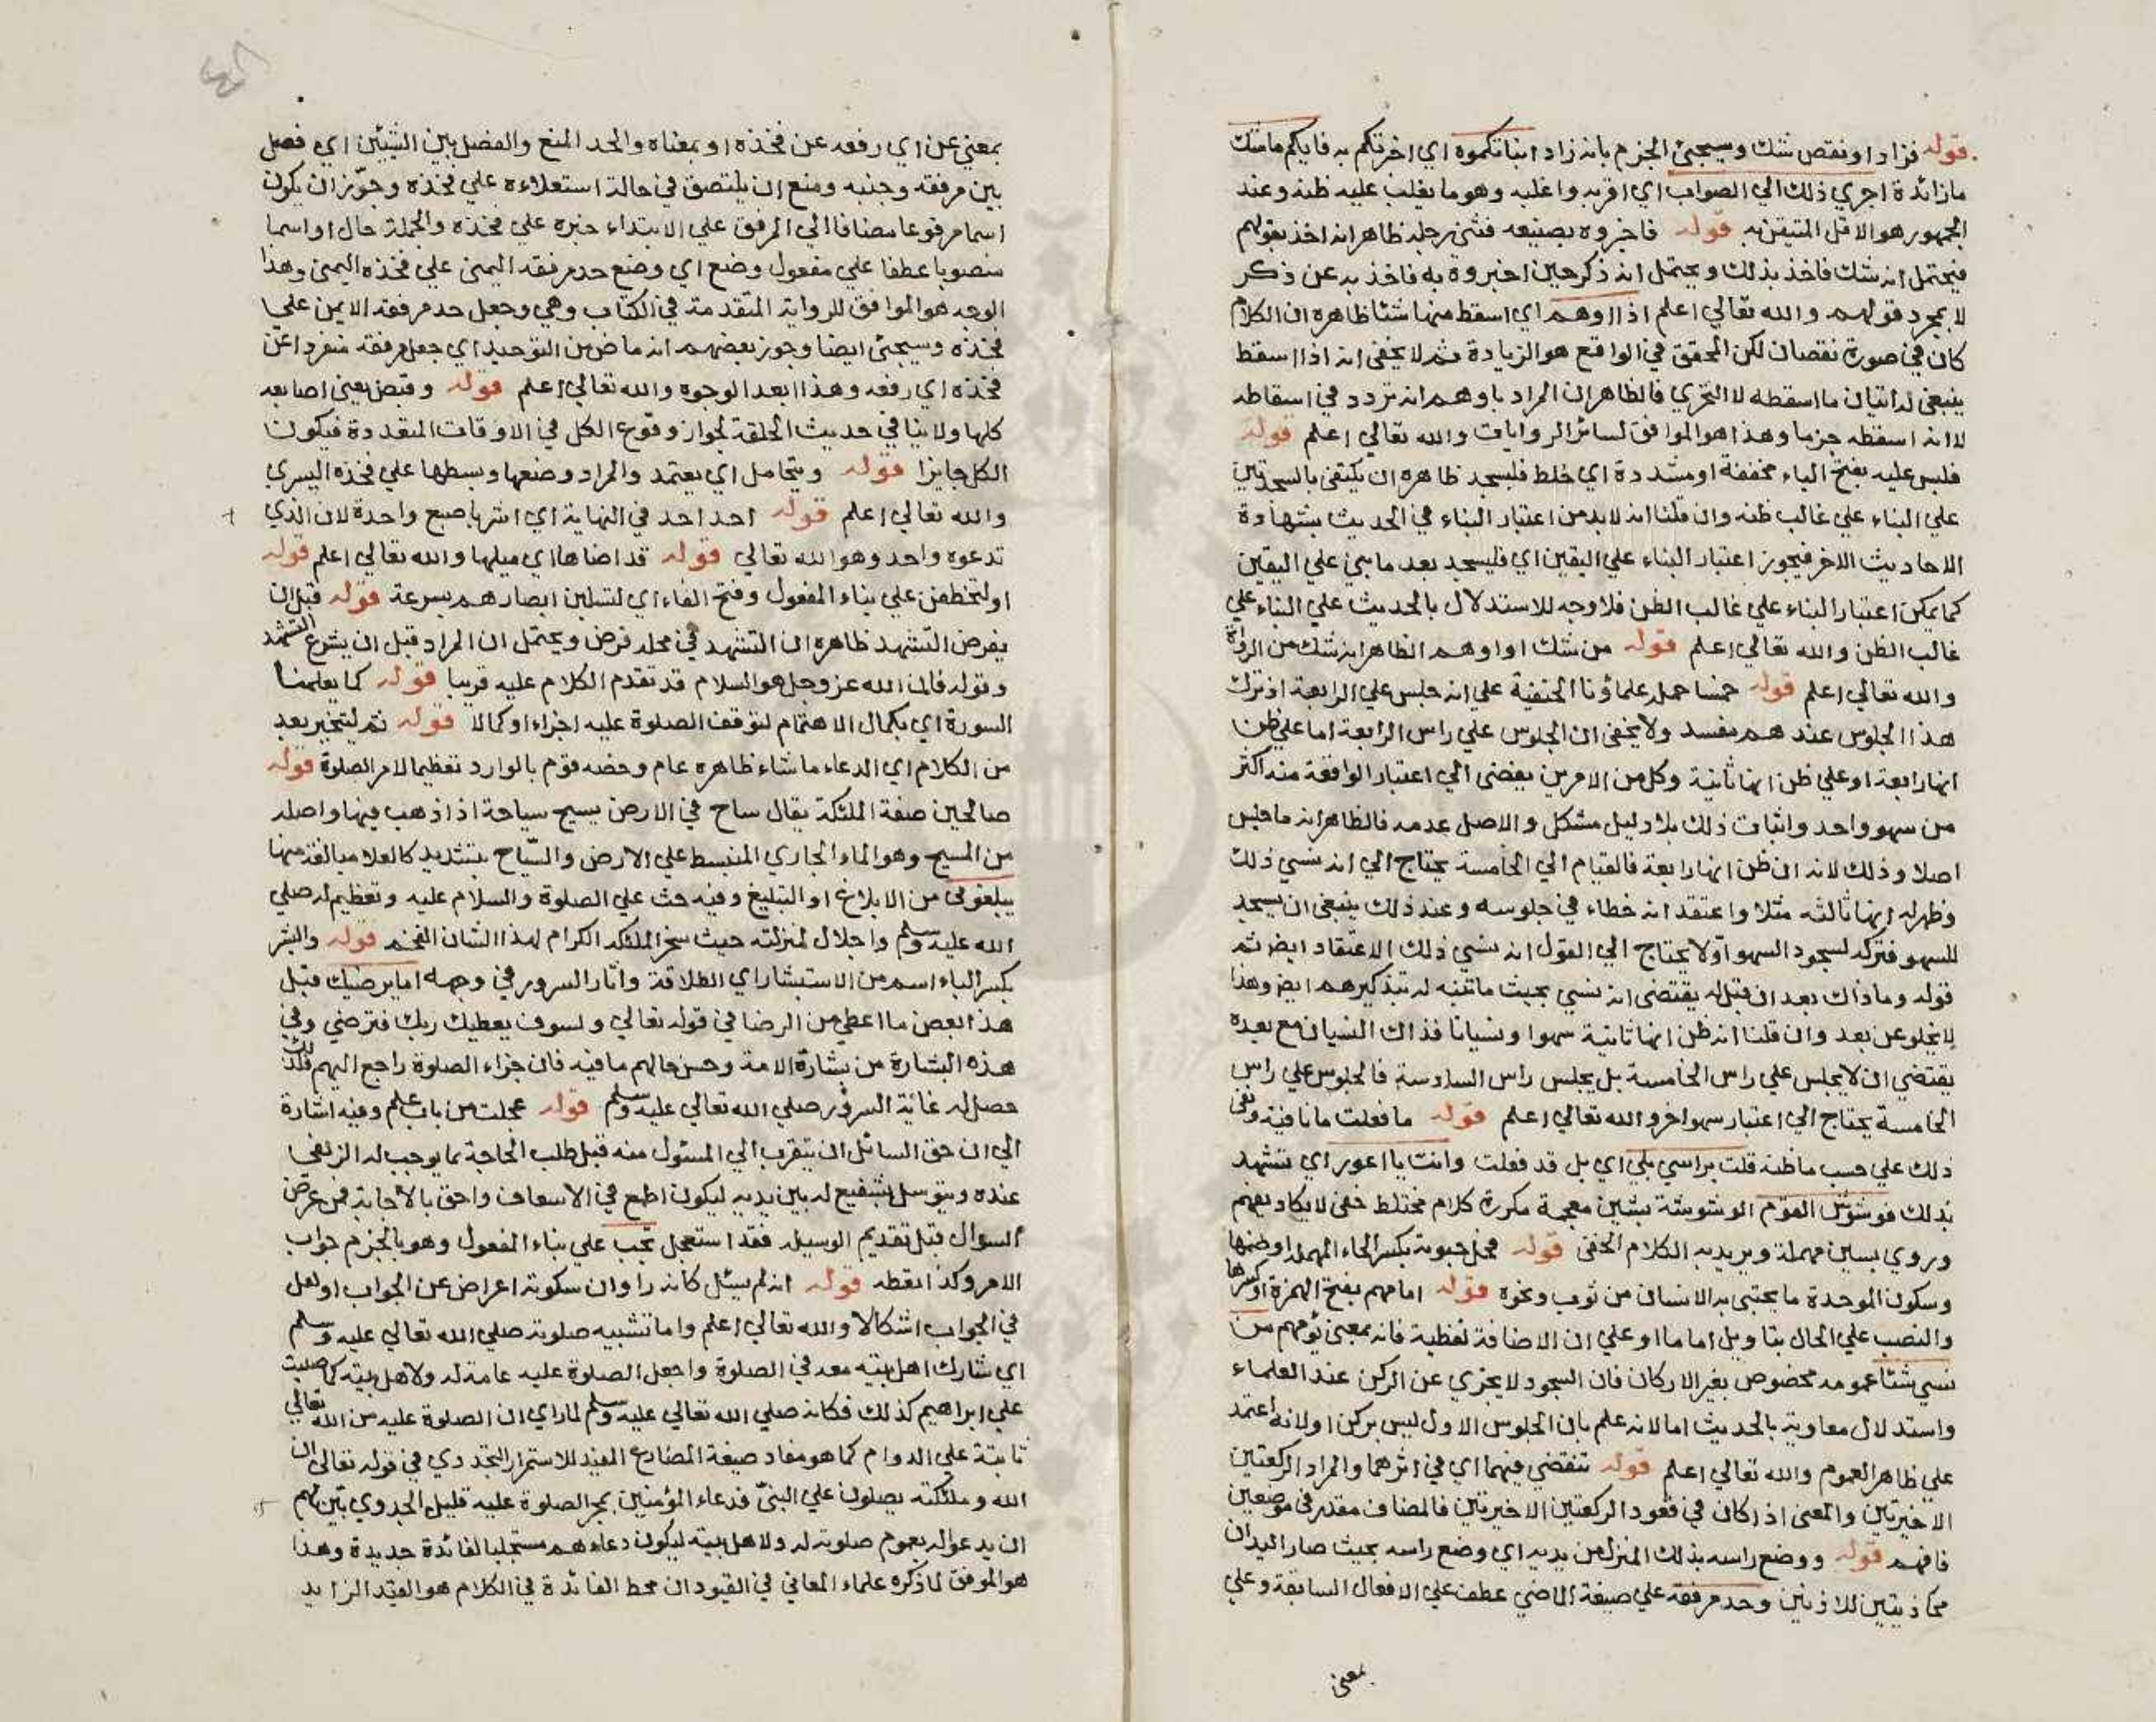 قوله فزاد او نقص شك وسيجئ الجزم بانه زاد انباتكموه اي اخبرتكم به فايكم ما شك
ما زائدة احري ذلك الي الصواب اي اقربه واغلبه وهو ما يغلب عليه ظنه وعند
الجمهور هو الاقل المتيقن به قوله فاخبروه بصنيعه فثني رجله ظاهر انه اخذ بقولهم
فيحتمل انه شك فاخذ بذلك ويحتمل انه ذكر حين اخبروه به فاخذ به عن ذكر
لا بمجرد قولهم والله تعالي اعلم اذا اوهم اي اسقط منها شئا ظاهره ان الكلام
كان في صورة نقصان لكن المحقق في الواقع هو الزيادة ثم لا يخفي انه اذا اسقط
ينبغي له اتيان ما اسقطه لا التحري فالظاهر ان المراد باوهم انه تردد في اسقاطه
لا انه اسقطه جزما وهذا هو الموافق لسائر الروايات والله تعالي اعلم قوله
فلبس عليه بفتح الباء مخففة او مشددة اي خلط فليسجد ظاهره ان يكتفي بالسجدتين
علي البناء علي غالب ظنه وان قلنا انه لا بد من اعتبار البناء في الحديث بشهادة
الاحاديث الاخر فيجوز اعتبار البناء علي اليقين اي فليسجد بعد ما بني علي اليقين
كما يمكن اعتبار البناء علي غالب الظن فلا وجه للاستدلال بالحديث علي البناء علي
غالب الظن والله تعالي اعلم قوله من شك او اوهم الظاهر انه شك من الرواة
والله تعالي اعلم قوله خمسا حمله علماؤنا الحنفية علي انه جلس علي الرابعة اذ ترك
هذا الجلوس عندهم مفسد ولا يخفي ان الجلوس علي راس الرابعة اما علي ظن
انها رابعة او علي ظن انها ثانية وكل من الامرين يفضي الي اعتبار الواقعة منه اكثر
من سهو واحد واثبات ذلك بلا دليل مشكل والاصل عدمه فالظاهر انه ما جلس
اصلا وذلك لانه ان ظن انها رابعة فالقيام الي الخامسة يحتاج الي انه نسي ذلك
وظهر له انها ثالثه مثلا واعتقد انه خطاء في جلوسه وعند ذلك ينبغي ان يسجد
للسهو فتركه لسجود السهو اولا يحتاج الي القول انه نسي ذلك الاعتقاد ايض ثم
قوله وما ذاك بعد ان قيل له يقتضي انه نسي بحيث ما تنبه له بتذكيرهم ايض وهذا
لا يخلو عن بعد وان قلنا انه ظن انها ثانية سهوا ونسيانا فذاك النسيان مع بعده
يقتضي ان لا يجلس علي راس الخامسة بل يجلس راس السادسة فالجلوس علي راس
الخامسة يحتاج الي اعتبار سهو اخر والله تعالي اعلم قوله ما فعلت ما نافية ونفي
ذلك علي حسب ما ظنه قلت براسي بلي اي بل قد فعلت وانت يا اعور اي تشهد
بذلك فوشوش القوم الوشوشة بشين معجمة مكررة كلام مختلط خفي لا يكاد يفهم
وروي بسين مهملة ويريد به الكلام الخفي قوله فحل حبوته بكسر الحاء المهملة او ضمها
وسكون الموحدة ما يحتبي به الانسان من ثوب ونحوه قوله امامهم بفتح الهمزة او كسرها
والنصب علي الحال بتاويل اماما او علي ان الاضافة لفظية فانه بمعني يؤمهم من
نسي شئا عمومه مخصوص بغير الاركان فان السجود لا يجزي عن الركن عند العلماء
واستدلال معاوية بالحديث اما لانه علم بان الجلوس الاول ليس بركن او لانه اعتمد
علي ظاهر العموم والله تعالي اعلم قوله تنقضي فيهما اي في اثرهما والمراد الركعتين
الاخيرتين والمعني اذا كان في قعود الركعتين الاخيرتين فالمضاف مقدر في موضعين
فافهم قوله ووضع راسه بذلك المنزل من يديه اي وضع راسه بحيث صار اليدان
محاذيتين للاذنين وحد مرفقه علي صيغة الماضي عطف علي الافعال السابقة وعلي
بمعني
بمعني عن اي رفعه عن فخذه او بمعناه والحد المنع والفصل بين الشيئين اي فصل
بين مرفقه وجنبه ومنع ان يلتصق في حالة استعلاءه علي فخذه وجوّز ان يكون
اسما مرفوعا مضافا الي المرفق علي الابتداء خبره علي فخذه والجملة حال او اسما
منصوبا عطفا علي مفعول وضع اي وضع حد مرفقه اليمني علي فخذه اليمني وهذا
الوجه هو الموافق للرواية المتقدمة في الكتاب وهي وجعل حد مرفقه الايمن علي
فخذه وسيجئ ايضا وجوز بعضهم انه ماض من التوحيد اي جعل مرفقه منفردا عن
فخذه اي رفعه وهذا ابعد الوجوه والله تعالي اعلم قوله وقبض يعني اصابعه
كلها ولا ينافي حديث الحلقة لجواز وقوع الكل في الاوقات المتعددة فيكون
الكل جايزا قوله ويتحامل اي يعتمد والمراد وضعها وبسطها علي فخذه اليسري
والله تعالي اعلم قوله احد احد في النهاية اي اشر باصبع واحدة لان الذي
تدعوه واحد وهو الله تعالي قوله قد احناها اي ميلها والله تعالي اعلم قوله
او لتخطفن علي بناء المفعول وفتح الفاء اي لتسلبن ابصارهم بسرعة قوله قبل ان
يفرض التشهد ظاهره ان التشهد في محله فرض ويحتمل ان المراد قبل ان يشرع التشهد
وقوله فان الله عز وجل هو السلام قد تقدم الكلام عليه قريبا قوله كما يعلمنا
السورة اي بكمال الاهتمام لتوقف الصلوة عليه اجزاء او كمالا قوله ثم ليتخير بعد
من الكلام اي الدعاء ما شاء ظاهره عام وخصه قوم بالوارد تعظيما لامر الصلوة قوله
صالحين صفة الملئكة يقال ساح في الارض يسيح سياحة اذا ذهب فيها واصله
من المسيح وهو الماء الجاري المنبسط علي الارض والسّياح بتشديد كالعلا مبالغة منها
يبلغوني من الابلاغ او التبليغ وفيه حث علي الصلوة والسلام عليه وتعظيم له صلي
الله عليه وسلم واجلال لمنزلته حيث سخر الملئكة الكرام لهذا الشان الفخم قوله والبشر
بكسر الباء اسم من الاستبشار اي الطلاقة واثار السرور في وجهه اما يرضيك قيل
هذا بعض ما اعطي من الرضا في قوله تعالي ولسوف يعطيك ربك فترضي وفي
هذه البشارة من بشارة الامة وحسن حالهم ما فيه فان جزاء الصلوة راجع اليهم فلذلك
حصل له غاية السرور صلي الله تعالي عليه وسلم قوله عجلت من باب علم وفيه اشارة
الي ان حق السائل ان يتقرب الي المسئول منه قبل طلب الحاجة بما يوجب له الزلفي
عنده ويتوسل بشفيع له بين يديه ليكون اطمع في الاسعاف واحق بالاجابة فمن عرض
السوال قبل تقديم الوسيلة فقد استعجل تجب علي بناء المفعول وهو بالجزم جواب
الامر وكذا تعطه قوله انه لم يسئل كانه را وان سكوته اعراض عن الجواب او لعل
في الجواب اشكالا والله تعالي اعلم واما تشبيه صلوته صلي الله تعالي عليه وسلم
اي شارك اهل بيته معه في الصلوة واجعل الصلوة عليه عامة له ولاهل بيته كما صليت
علي ابراهيم كذلك فكانه صلي الله تعالي عليه وسلم لما راي ان الصلوة عليه من الله تعالي
ثابتة علي الدوام كما هو مفاد صيغة المضارع المفيد للاستمرار التجددي في قوله تعالي ان
الله وملئكته يصلون علي النبيّ فدعاء المؤمنين بمجر الصلوة عليه قليل الجدوي بيّن لهم
ان يدعوا له بعموم صلوته له ولاهل بيته ليكون دعاءهم مستجلبا لفائدة جديدة وهذا
هو الموفق لما ذكره علماء المعاني في القيود ان محط الفائدة في الكلام هو القيد الزايد